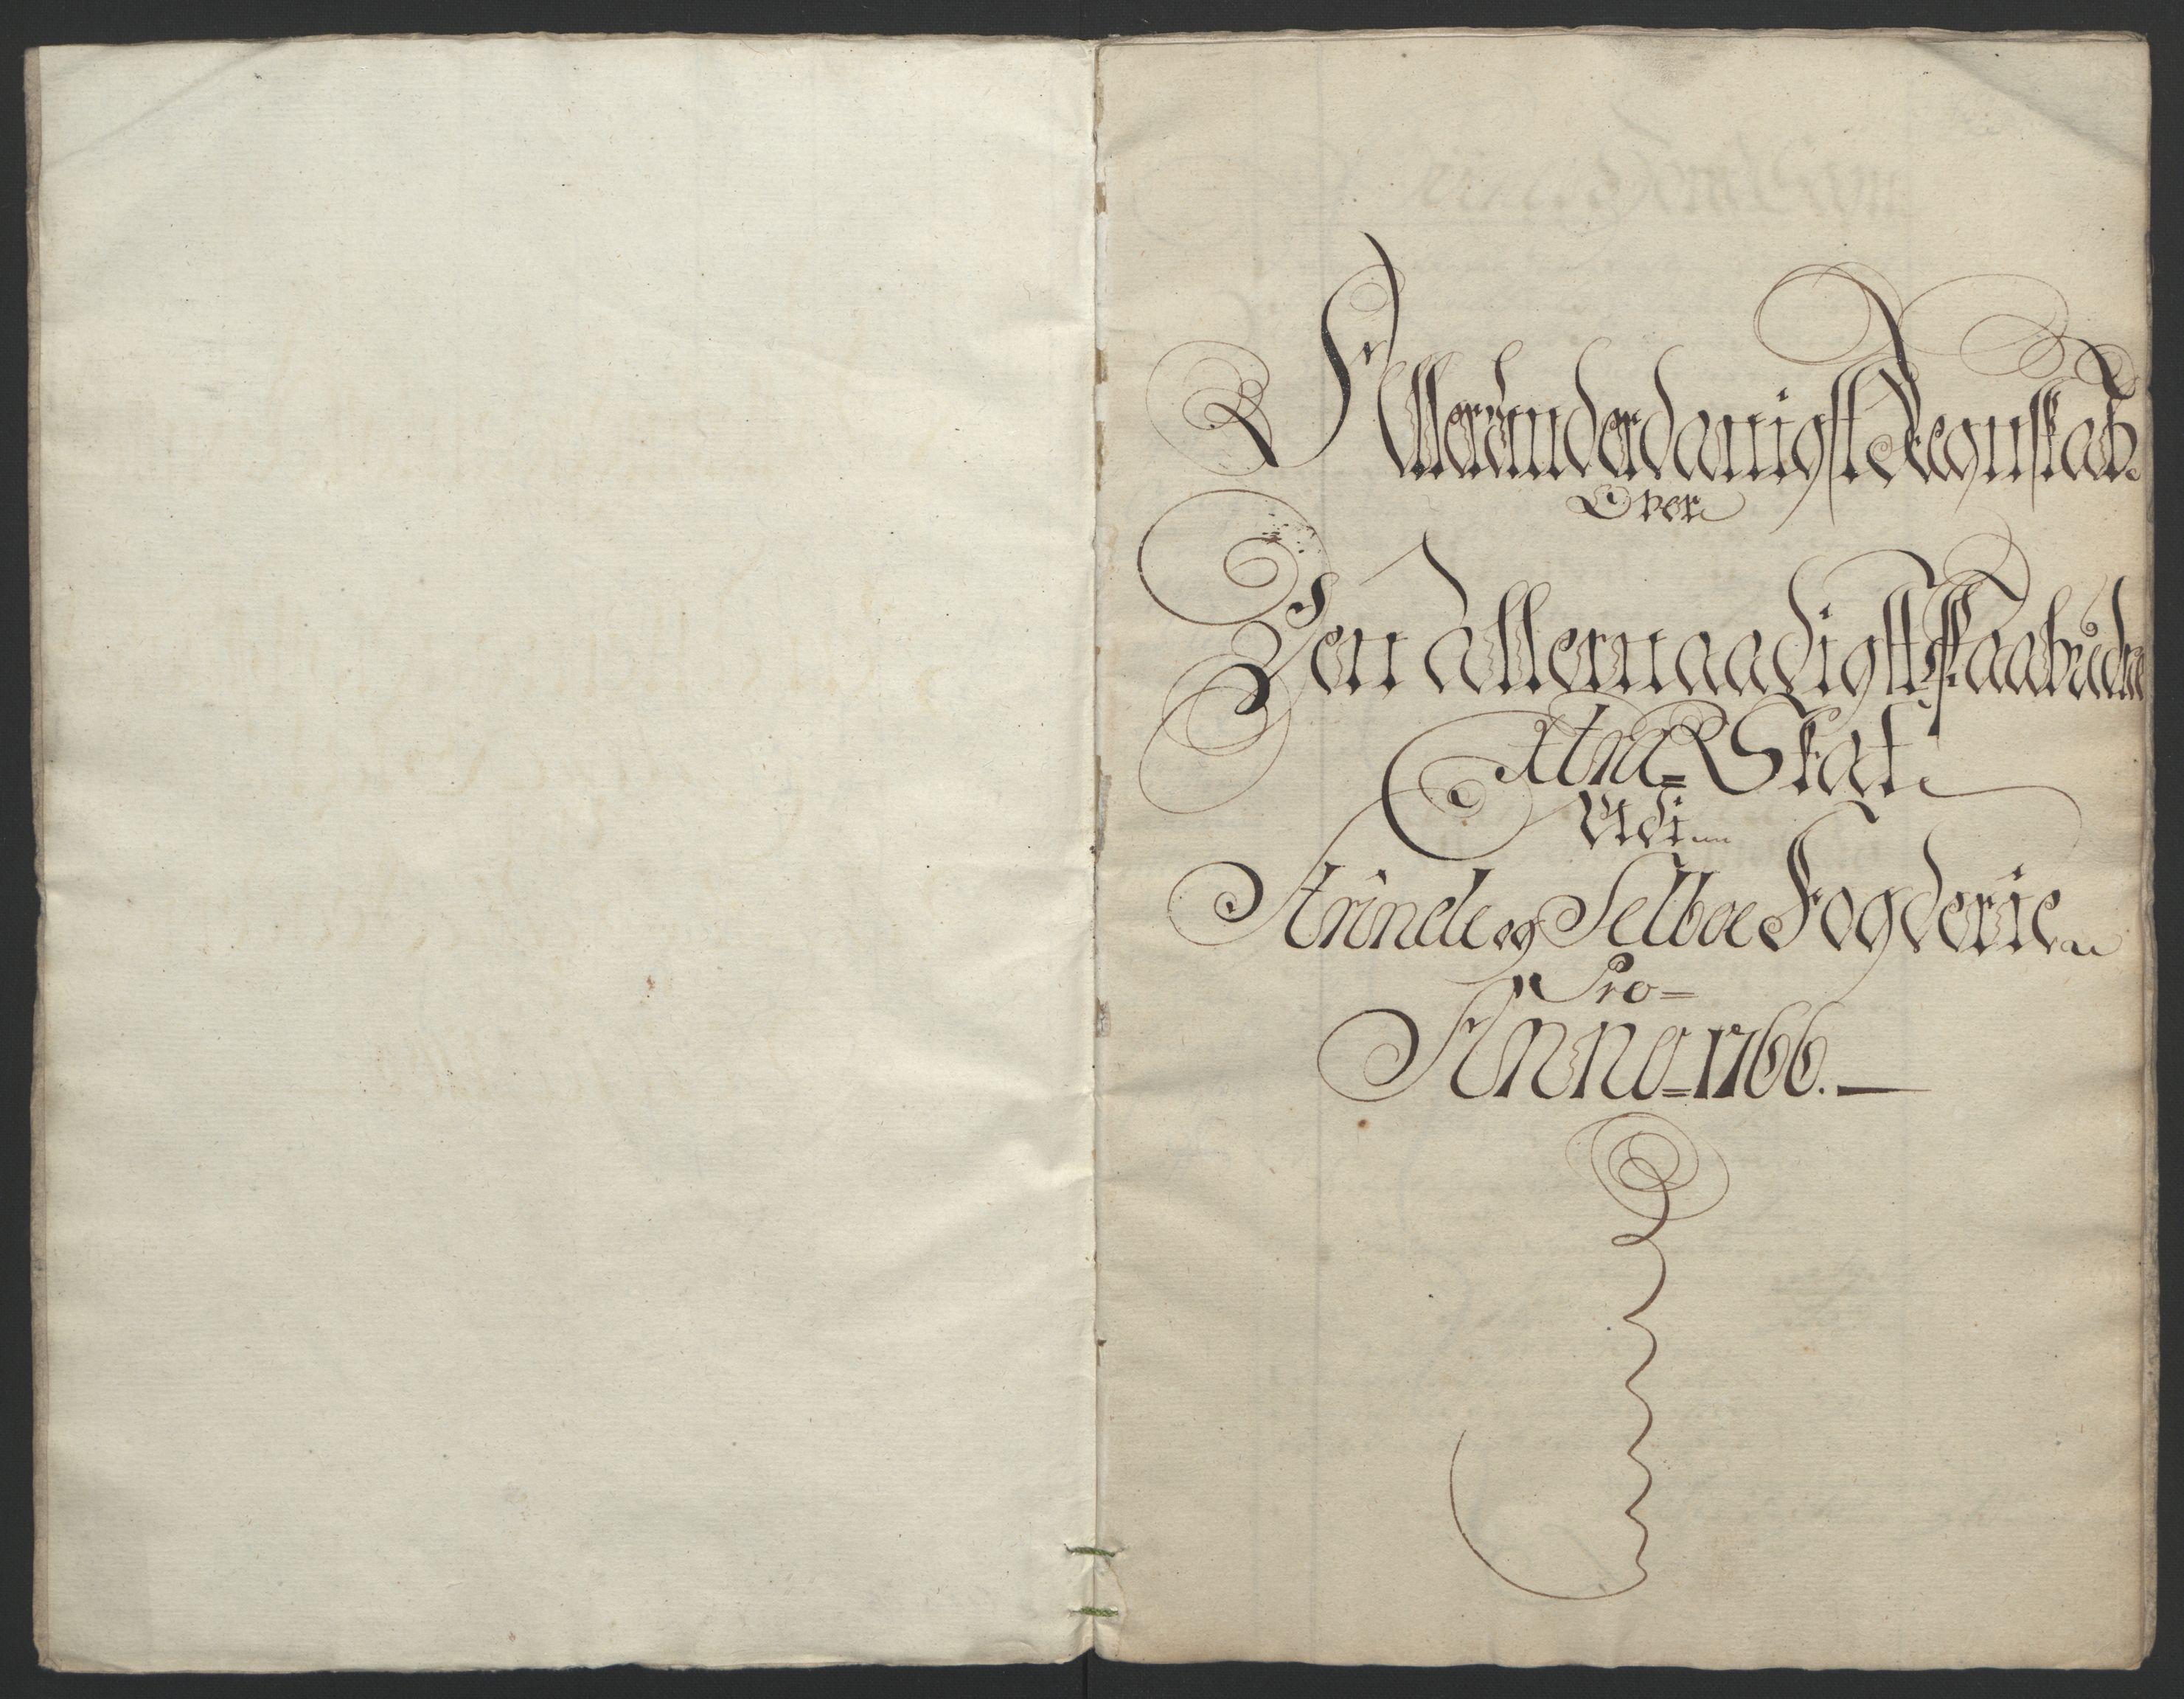 Alleründerdanigst Regnskab.
Over
Den Allernaadigst paabudne
Extra=Skat
Udi
Strinde og Selboe Fogderie
Pro=
Anno=1766.